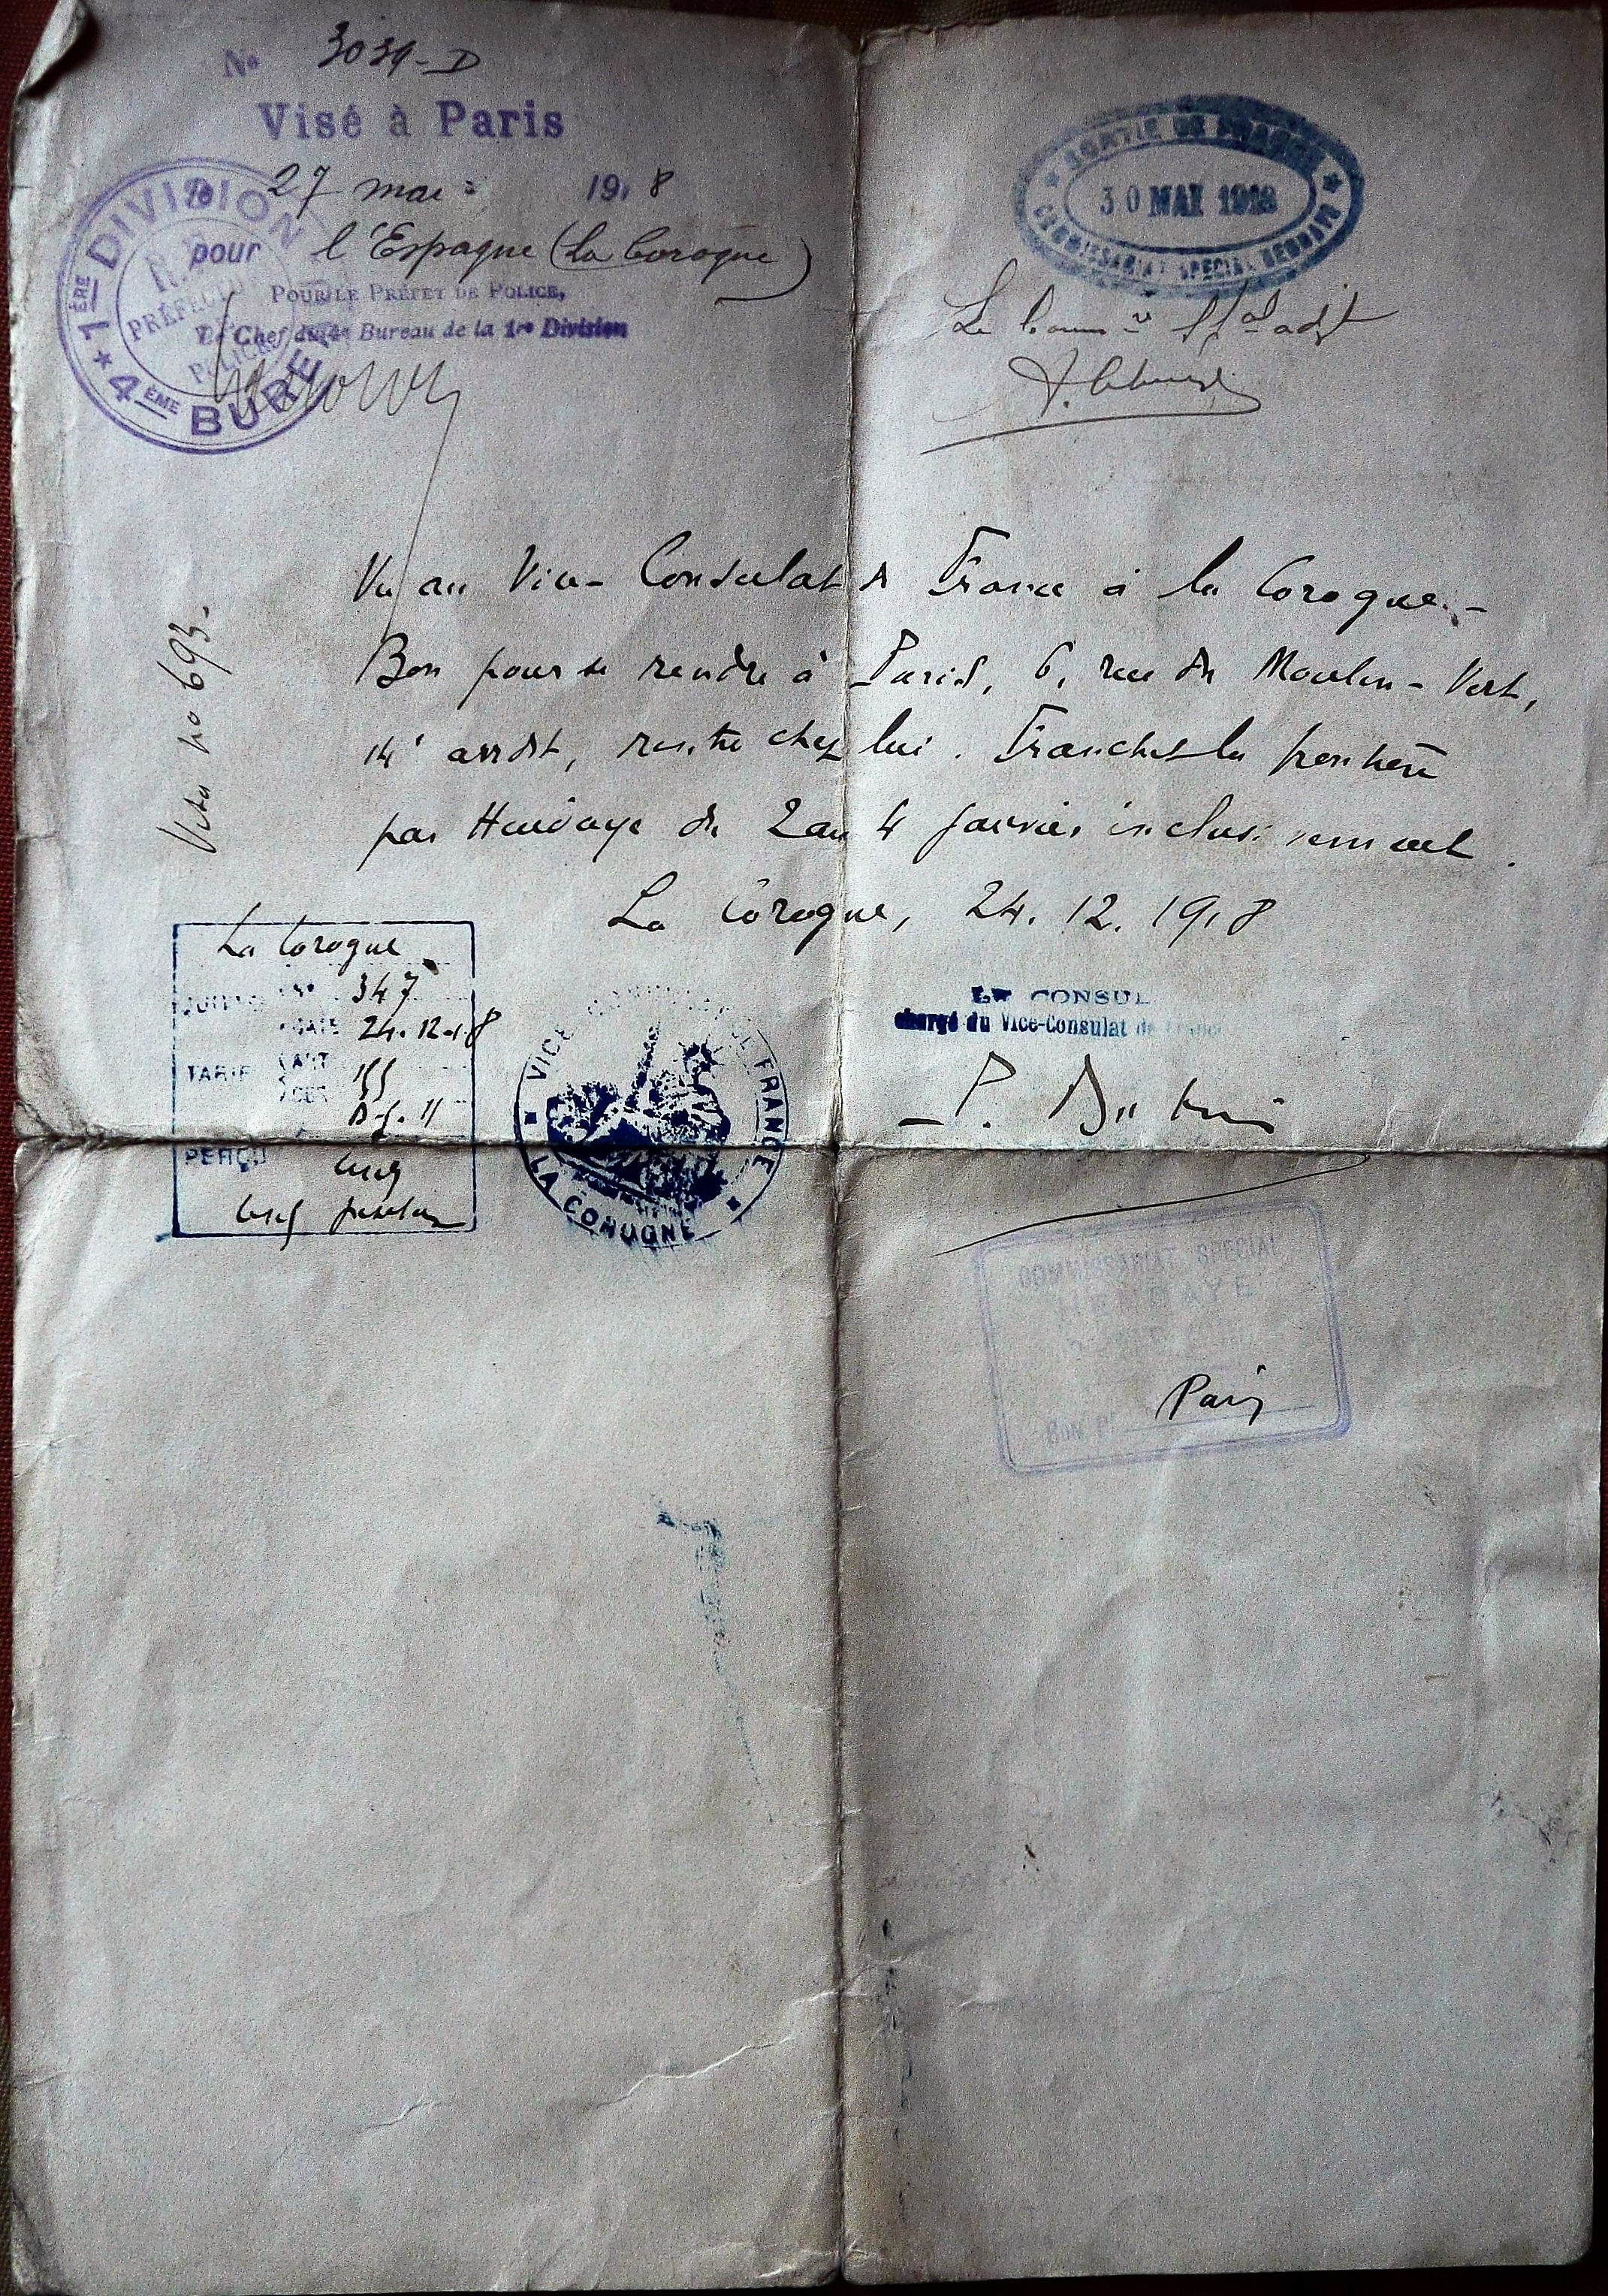 No 3039-D
Visé à Paris
le 27 mai 1918
pour l'Espagne (La Corogne)
POUR LE PRÉFET DE POLICE,
Le Chef du 4e Bureau de la 1re Division
1ÈRE DIVISION
PRÉFECTURE
DE
POLICE
4ÈME BUREAU
SORTIE DE FRANCE
30 MAI 1918
COMMISSARIAT SPECIAL HENDAYE
Le Commre Spal adjt
Vu au Vice-Consulat de France à la Corogne.-
Bon pour se rendre à Paris, 6, rue du Moulin-Vert,
14e arrdt, rentre chez lui. Franchit la frontière
par Hendaye du 2 au 4 janvier inclusivement.
La Corogne, 24.12.1918
Visa no 693.
La Corogne
347
DATE 24-12-18
TARIF ART 155
PERÇU cinq
VICE CONSULAT DE FRANCE
LA COROGNE
LE CONSUL
chargé du Vice-Consulat de France
COMMISSARIAT SPECIAL
HENDAYE
Bon pr Paris